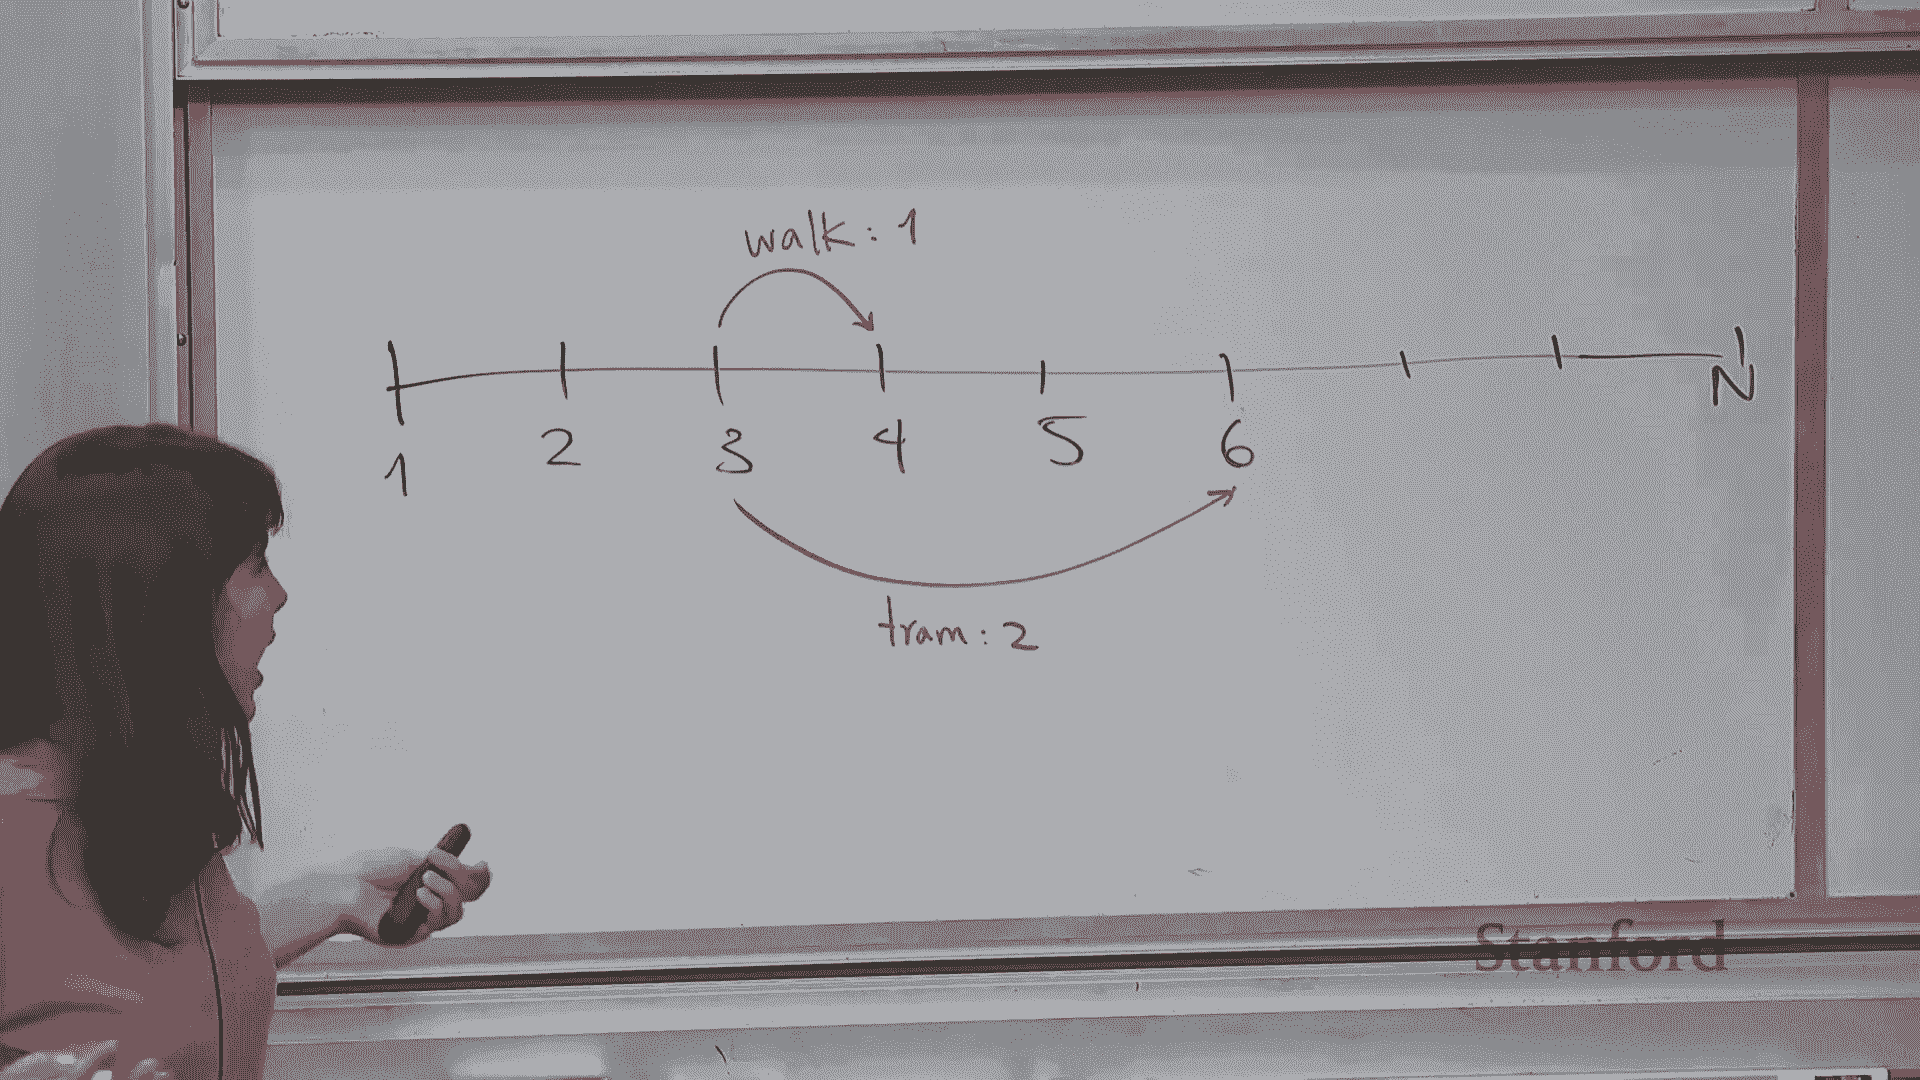 walk: 1
1 2 3 4 5 6 N
tram: 2
Stanford